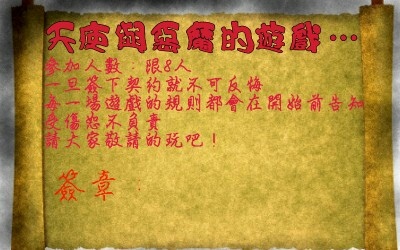 天使與惡魔的遊戲…
參加人數：限8人
一旦簽下契約就不可反悔
每一場遊戲的規則都會在開始前告知
受傷恕不負責
請大家敬請的玩吧！
簽章：